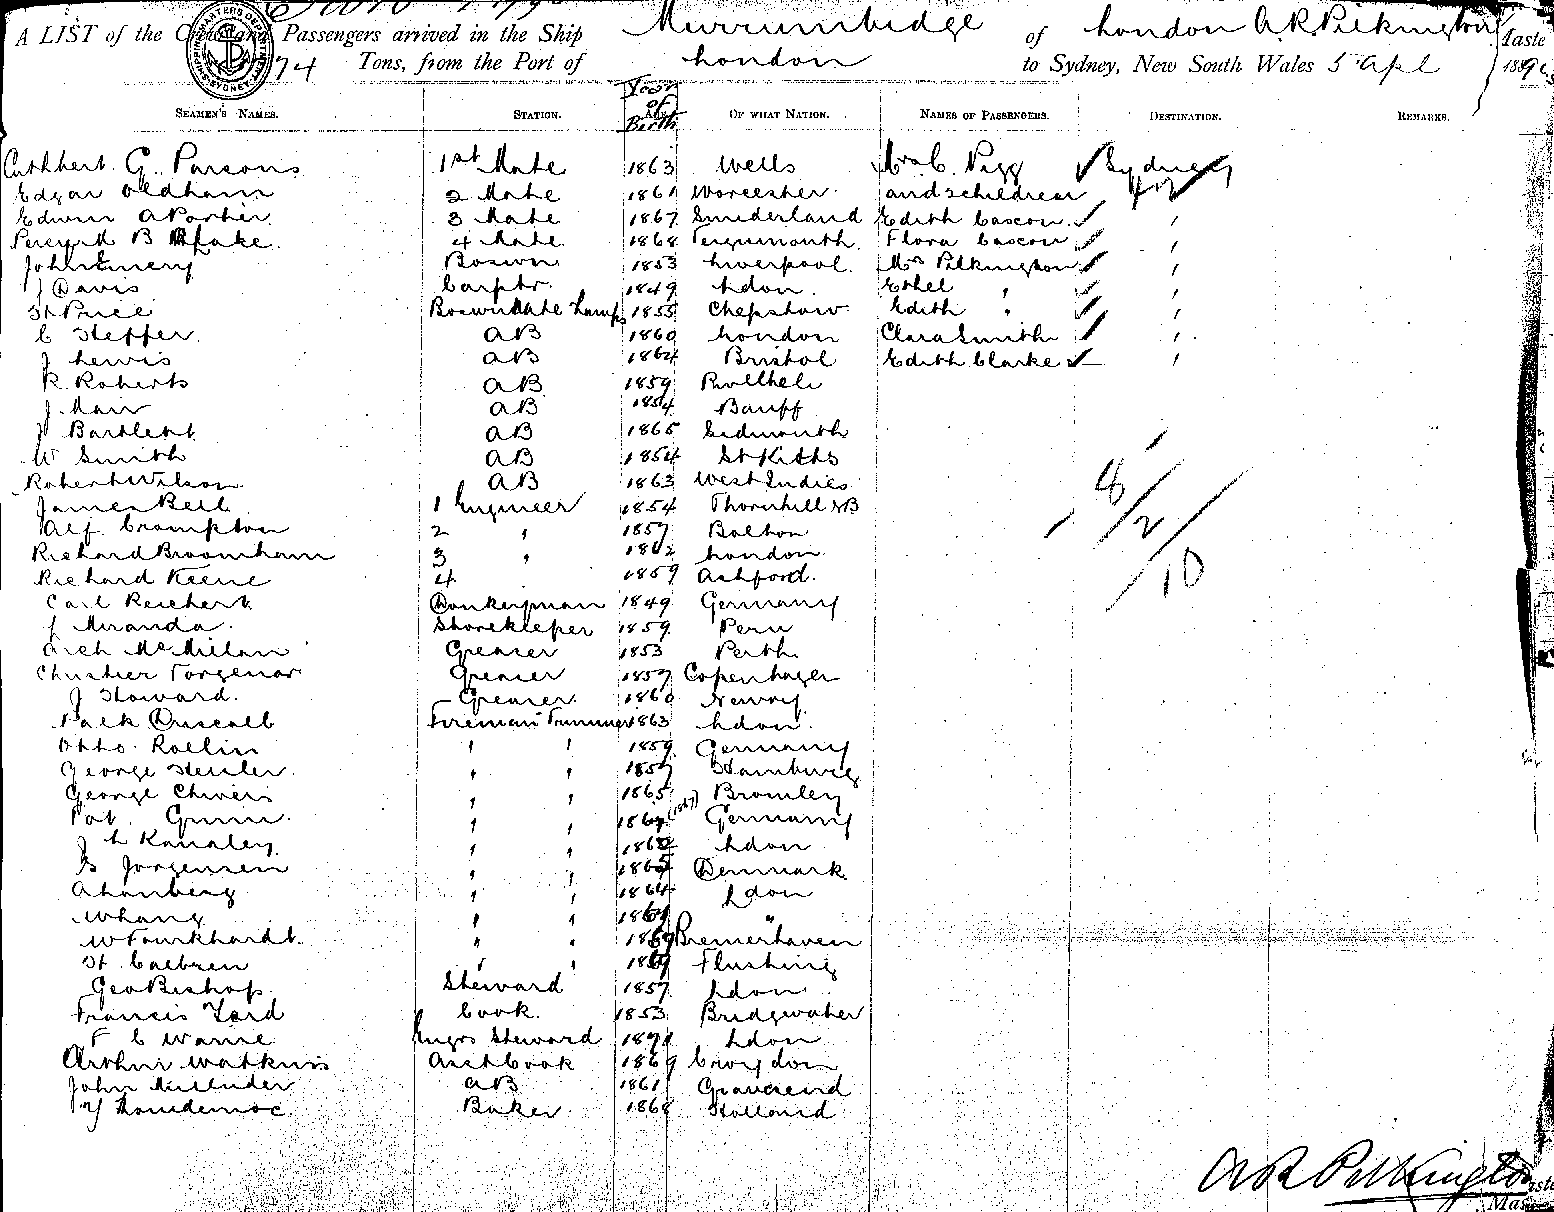 A LIST of the Crew and Passengers arrived in the Ship Murrumbidge of London A.R. Pilkington Master
74 Tons, from the Port of London to Sydney, New South Wales 5 Apl 1890
SEAMEN'S NAMES. STATION. Year of Birth OF WHAT NATION. NAMES OF PASSENGERS. DESTINATION. REMARKS.
Cuthbert G. Parsons 1st Mate 1863 Wells Mrs C. Pigg Sydney
Edgar Oldham 2 Mate 1861 Worcester and 2 children
Edwin A Porter 3 Mate 1867 Sunderland Edith Coscon "
B Blake 4 Mate 1868 Teignmouth Flora Coscon "
John Emery Boswn 1853 Liverpool Mrs Pilkington "
J Davis Carptr. 1849 Ldon. Ethel " "
H Price Boswn Mate Lamps 1855 Chepstow Edith " "
C Steffer AB 1860 London Clara Smith "
J Lewis AB 1864 Bristol Edith Clarke "
R Roberts AB 1859 Pwllheli
J. Mair AB 1854 Banff
J Bartlett AB 1865 Sidmouth
W Smith AB 1854 St Kitts
Robert Wilson AB 1863 West Indies
James Bell 1 Engineer 1854 Thornhill NB
Alf Crompton 2 " 1857 Bolton
Richard Broomham 3 " 1862 London
Richard Keene 4 1859 Ashford.
Carl Reichert Donkeyman 1849 Germany
J Miranda Storekeeper 1859 Peru
Arch McMillan Greaser 1853 Perth
Greaser 1857 Copenhagen
J Howard. Greaser 1860 Newry
Driscoll Fireman Trimmer 1863 Ldon
Otto Rollin " " 1859 Germany
George " " 1859 Hamburg
George Chivers " " 1865 Bromley
Pat. Gunn " " (1867) Germany
J L Kanaley " " Ldon
G Jorgensen " " Denmark
A Lonberg " " 1864 Ldon
W Lang " " "
" " Bremerhaven
" " Flushing
Geo Bishop Steward 1857 Ldon
Francis Yard Cook. 1853 Bridgwater
F C Warne Engrs Steward Ldon
Arthur Watkins Asst Cook 1869 Croydon
John AB 1861 Gravesend
Baker 1868 Holland
8/2/10
A R Pilkington
Master